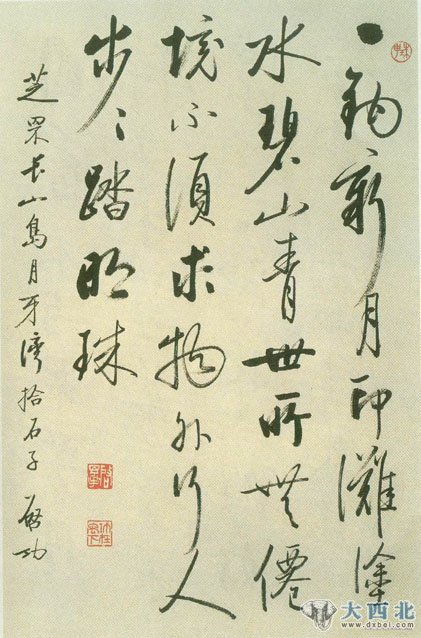 一鈎新月印灘涂
水碧山青世所無僊
境不須求物外行人
步々踏明珠
芝罘長山島月牙灣拾石子 啓功
大西北
www.dxbei.com